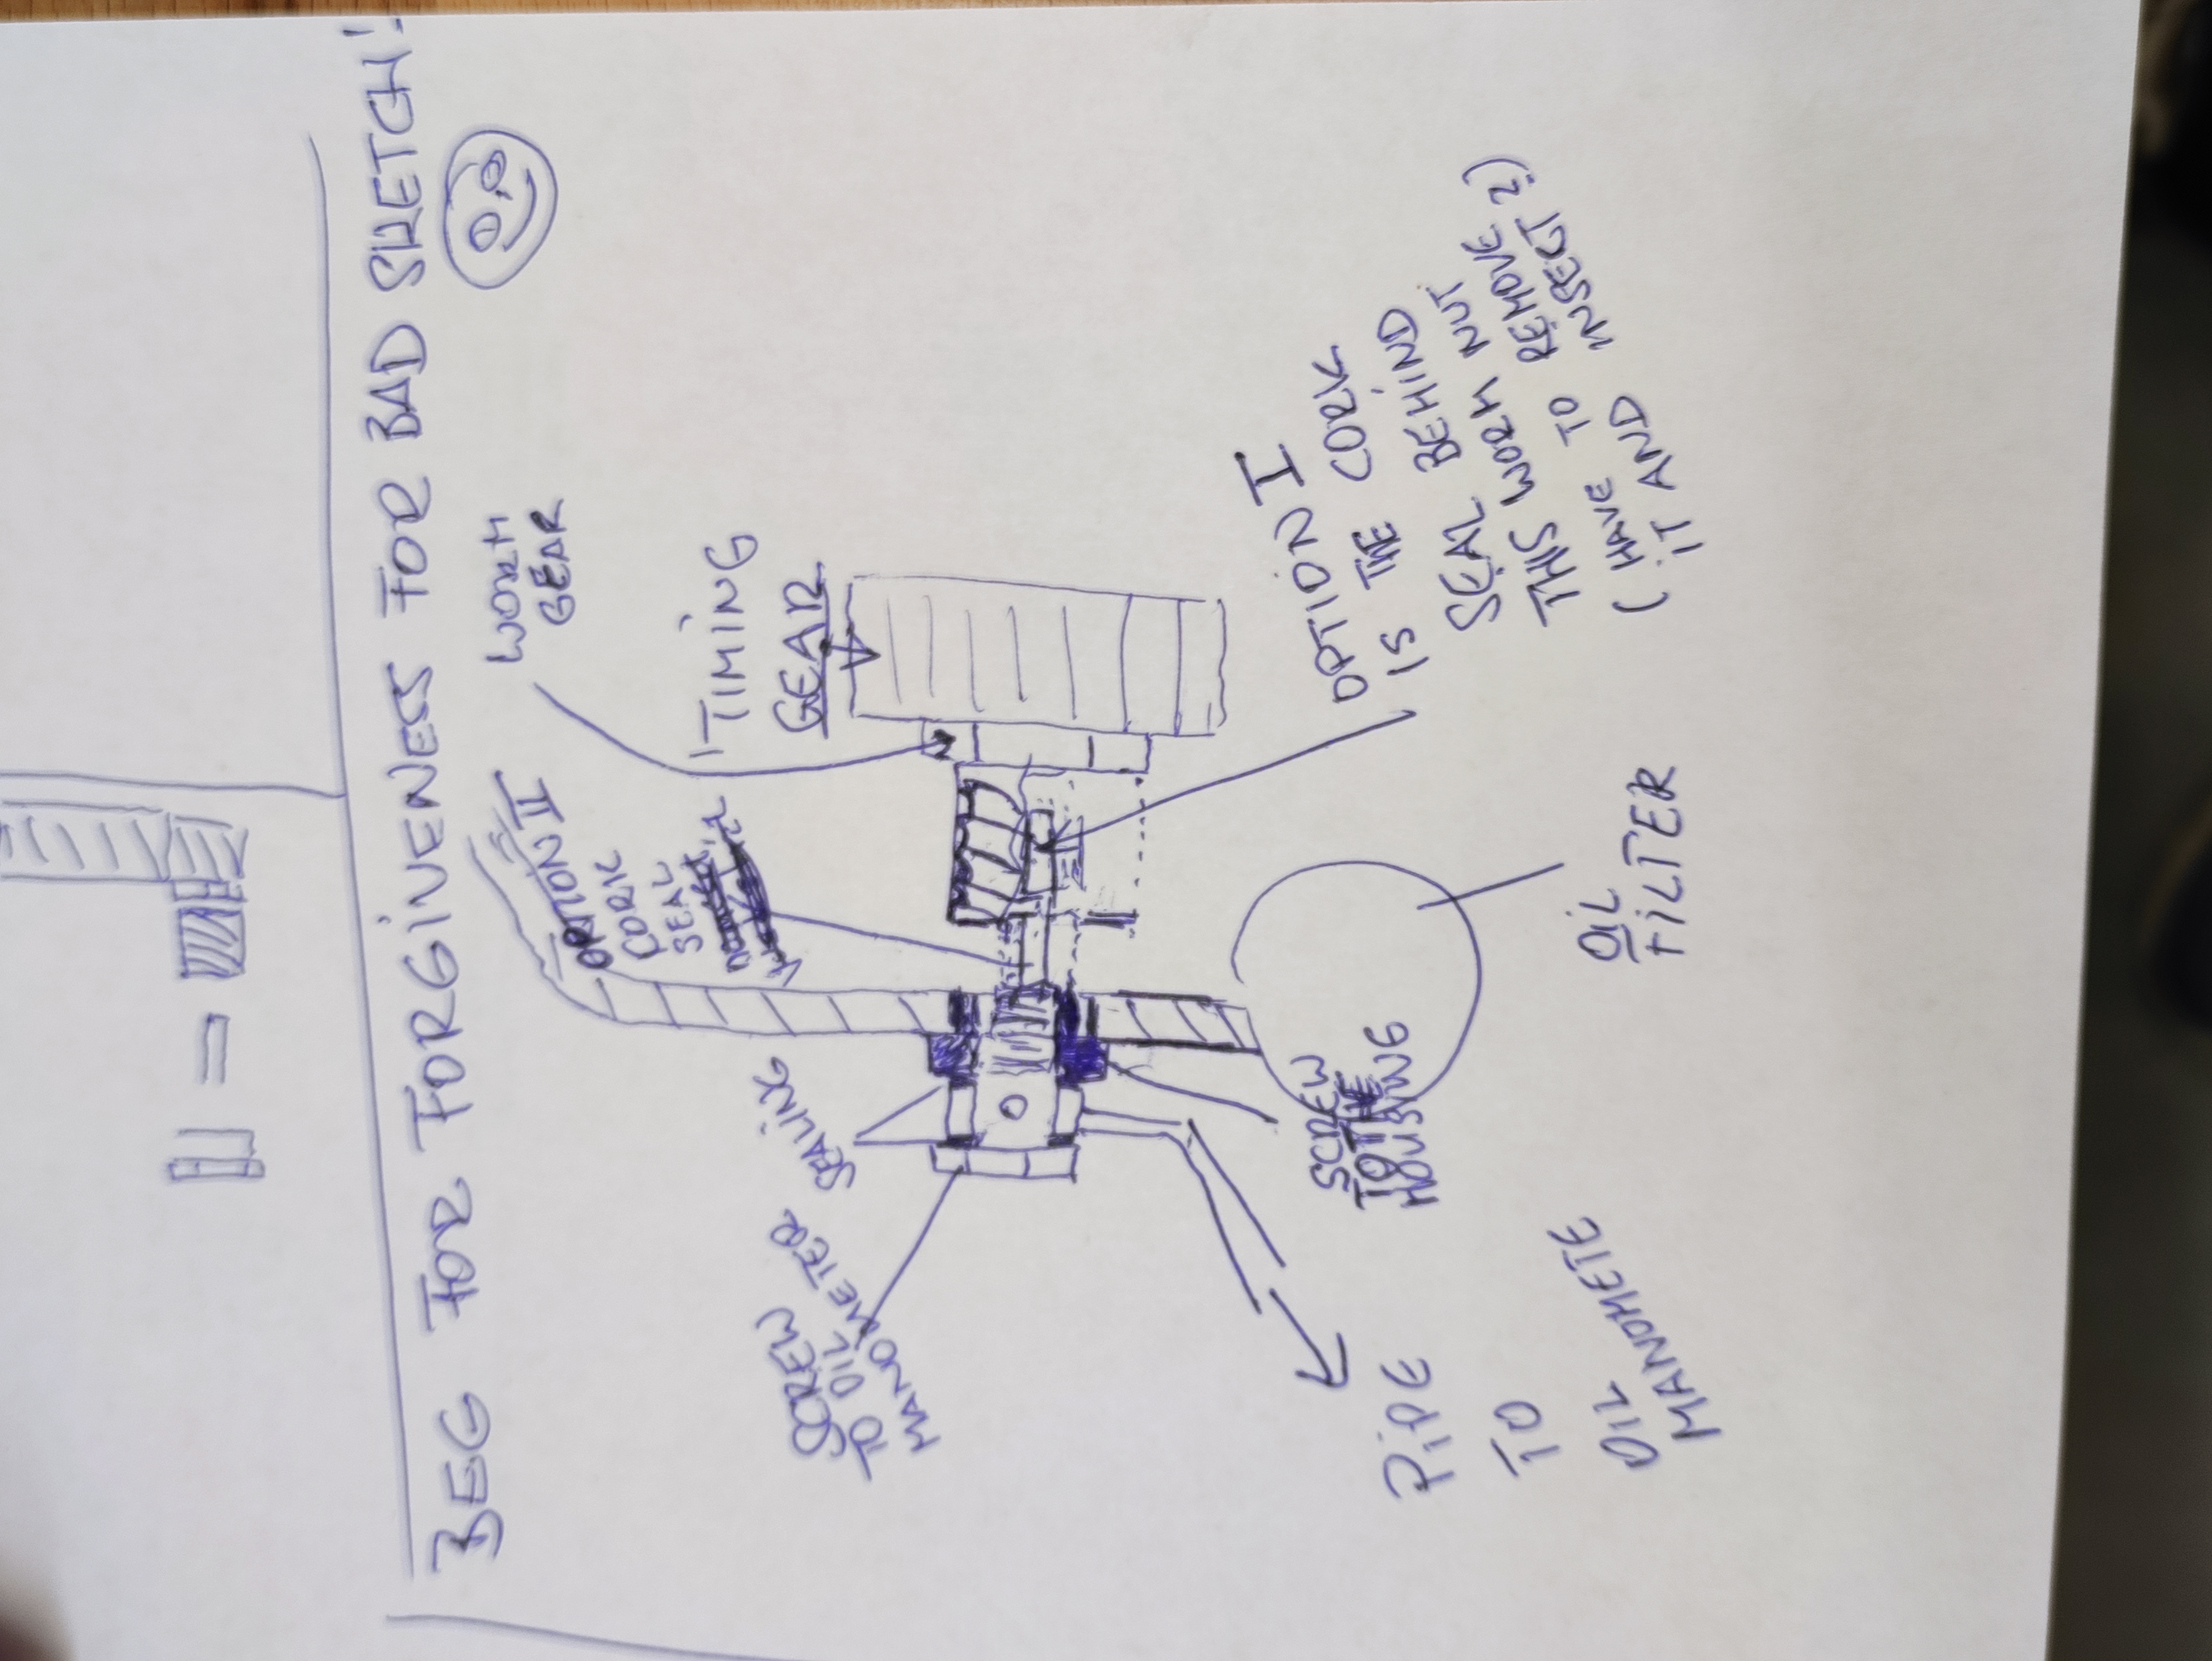 BEG FOR FORGIVENESS FOR BAD SKETCH!
WORM
GEAR
TIMING
GEAR
OPTION II
CORK
SEAL
OPTION I
IS THE CORK
SEAL BEHIND
THIS WORM NUT
(HAVE TO REMOVE
IT AND INSPECT?)
SEALING
SCREW
TO OIL
MANOMETER
SCREW
TO THE
HOUSING
OIL
FILTER
PIPE
TO
OIL
MANOMETE